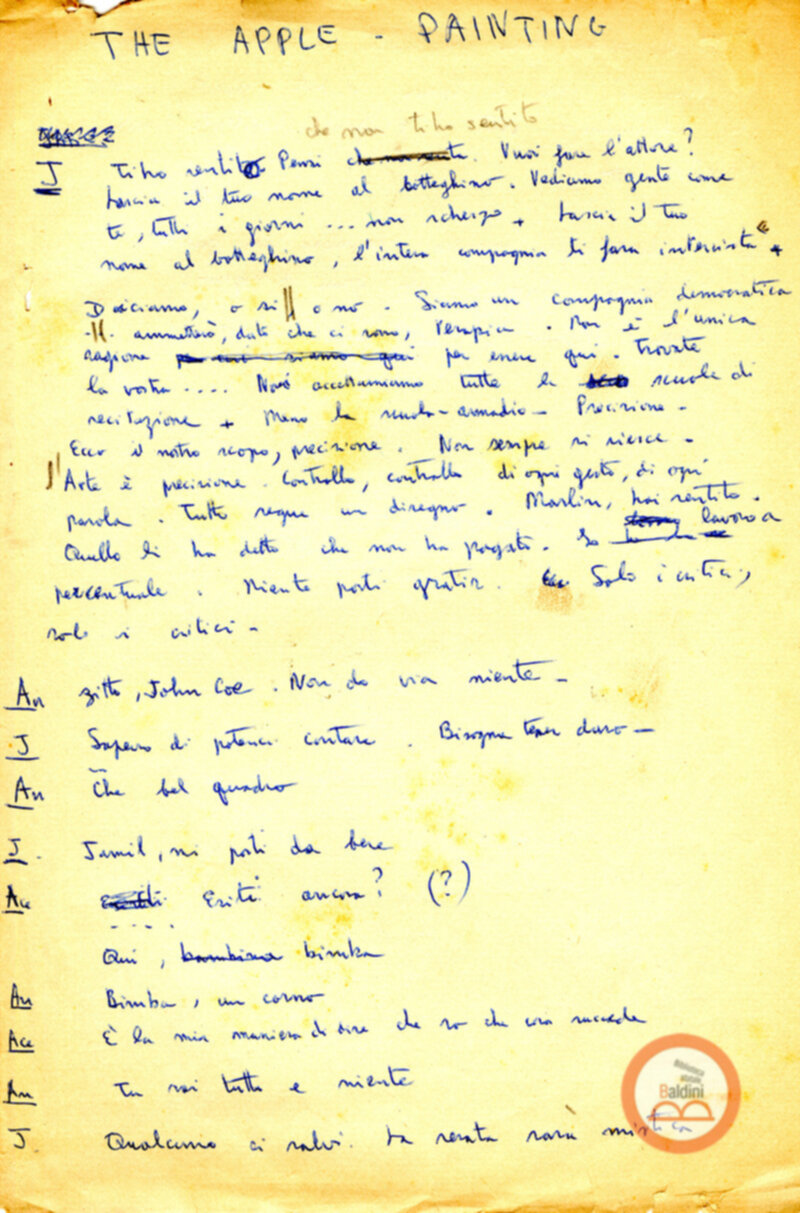 THE APPLE - PAINTING
che non ti ho sentito
J Ti ho sentito Pensi che non senta. Vuoi fare l'attore?
Lascia il tuo nome al botteghino. Vediamo gente come
te, tutti i giorni ... non scherzo + Lascia il tuo
nome al botteghino, l'intera compagnia ti farà intervista +
Diciamo, o si o no. Siamo un compagnia democratica
ammetterò, dato che ci sono, terapia. Non è l'unica
ragione per cui siamo qui per essere qui. Trovate
la vostra .... Noi accettiamo tutte le scuole di
recitazione + Meno la scuola-armadio - Precisione -
Ecco il nostro scopo, precisione. Non sempre si riesce -
l'Arte è precisione. Controllo, controllo di ogni gesto, di ogni
parola. Tutto segue un disegno. Marlin, hai sentito.
Quello lì ha detto che non ha pagato. Io lavoro a
percentuale. Niente posti gratis. Solo i critici,
solo i critici -
An Zitto, John Coe. Non do via niente -
J Sapevo di poterci contare. Bisogna tener duro -
An Che bel quadro
J. Jamil, mi porti da bere
Ace Esiti ancora? (?)
- - - -
Qui, bambina bimba
An Bimba, un corno
Ace È la mia maniera di dire che so che cosa succede
An Tu sai tutto e niente
J Qualcuno ci salvi. La serata sarà mistica
Biblioteca
statale
Baldini